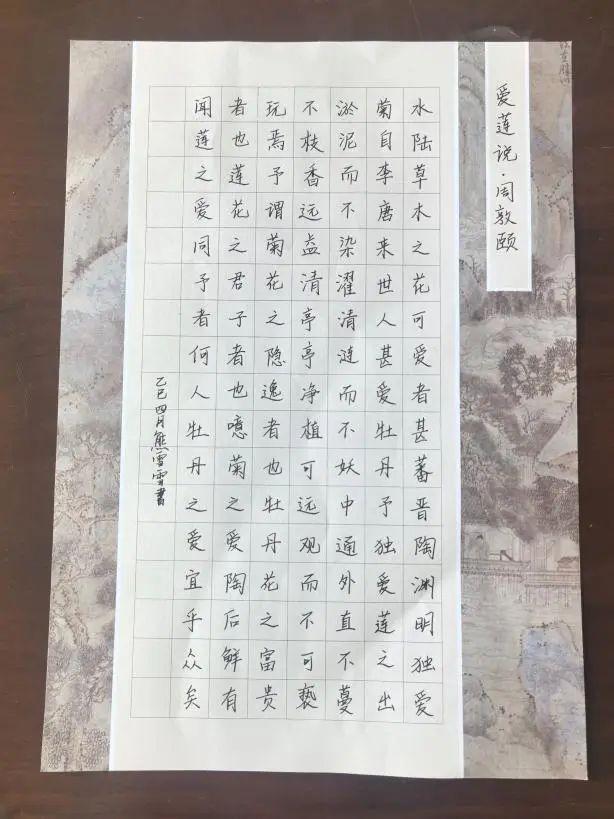 爱莲说·周敦颐
水陆草木之花可爱者甚蕃晋陶渊明独爱
菊自李唐来世人甚爱牡丹予独爱莲之出
淤泥而不染濯清涟而不妖中通外直不蔓
不枝香远益清亭亭净植可远观而不可亵
玩焉予谓菊花之隐逸者也牡丹花之富贵
者也莲花之君子者也噫菊之爱陶后鲜有
闻莲之爱同予者何人牡丹之爱宜乎众矣
乙巳四月熊雪雪書